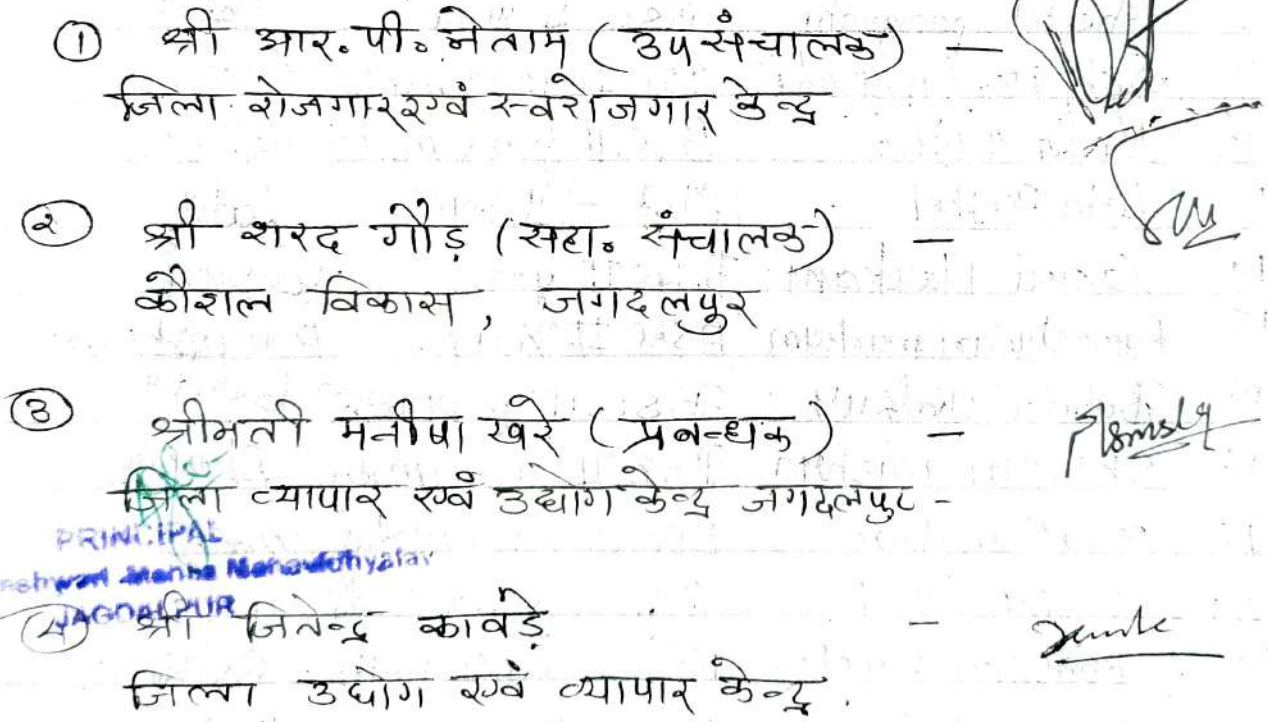 ① श्री आर॰ पी॰ नेताम (उपसंचालक) —
जिला रोजगार एवं स्वरोजगार केन्द्र.
② श्री शरद गौड़ (सहा॰ संचालक) —
कौशल विकास, जगदलपुर
③ श्रीमती मनीषा खरे (प्रबन्धक) —
जिला व्यापार एवं उद्योग केन्द्र जगदलपुर -
PRINCIPAL
JAGDALPUR
④ श्री जितेन्द्र कावड़े —
जिला उद्योग एवं व्यापार केन्द्र.